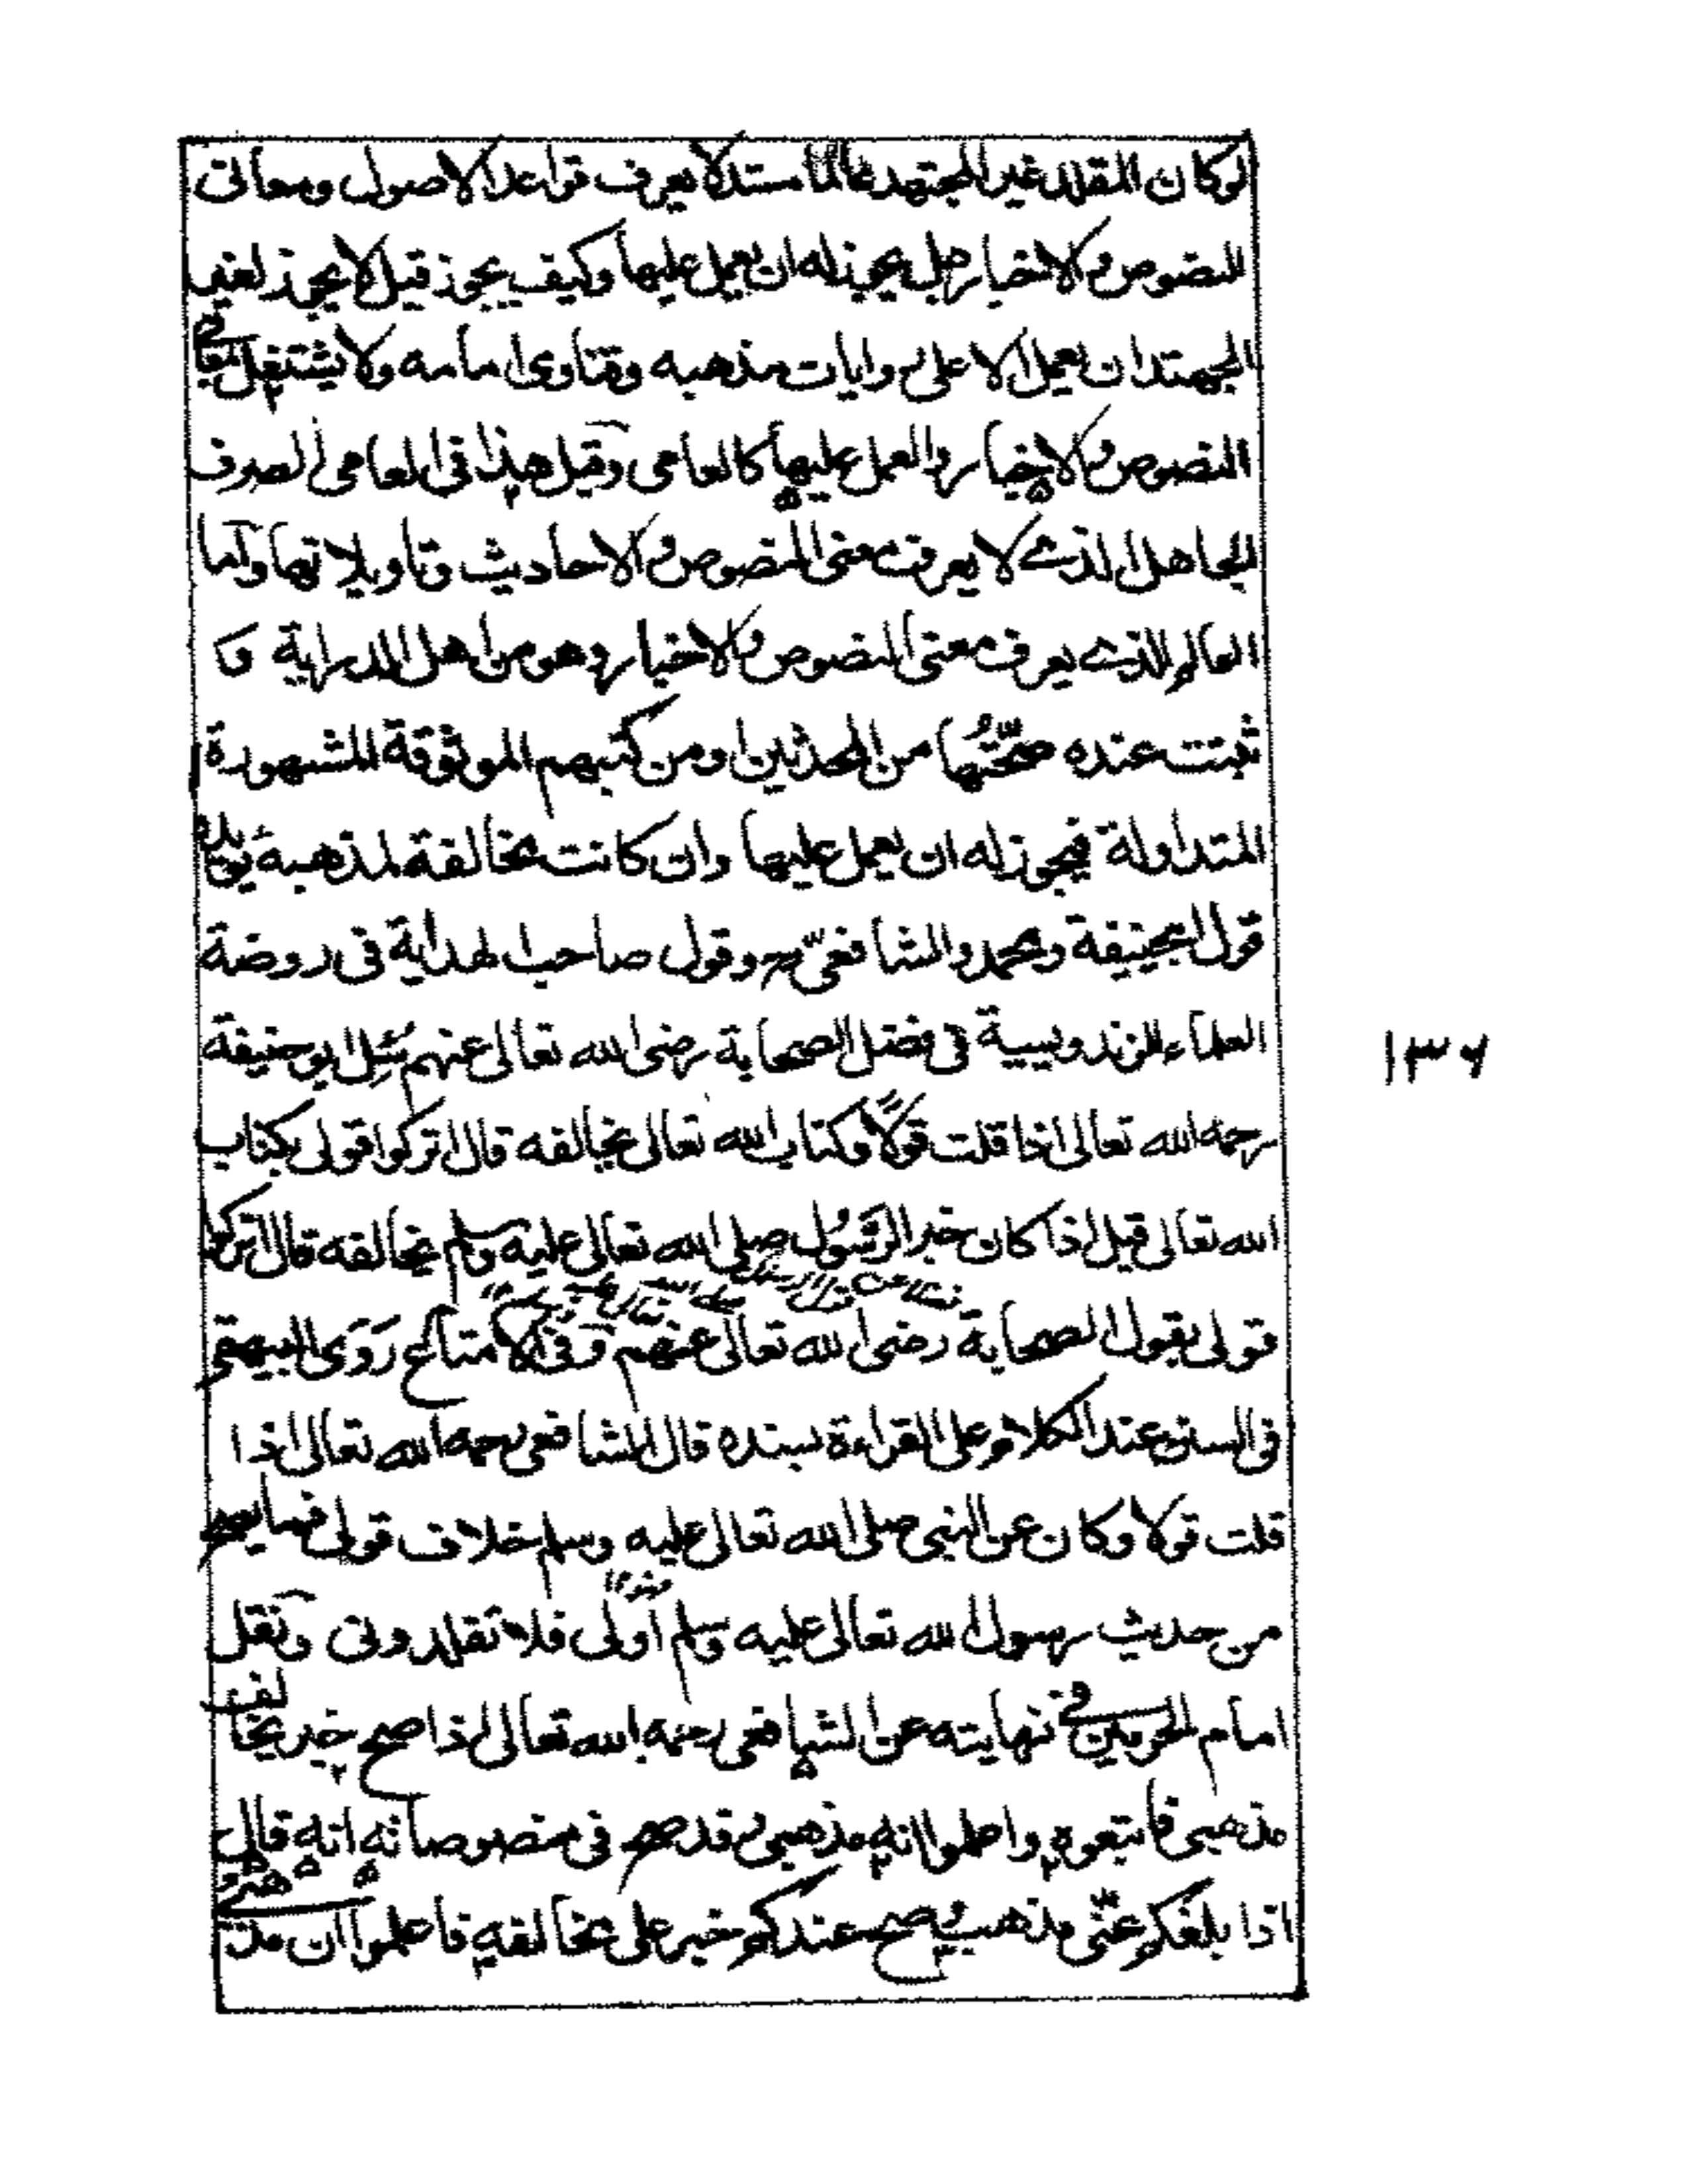 لوكان المقلد غير المجتهد عالما مستدلا يعرف قواعد الاصول ومعانى
النصوص والاخبار هل يجوز له ان يعمل عليها وكيف يجوز قيل لا يجوز لغير
المجتهد ان يعمل الا على روايات مذهبه وفتاوى امامه ولا يشتغل بمعانى
النصوص والاخبار والعمل عليها كالعامى وقيل هذا فى العامى الصرف
الجاهل الذى لا يعرف معنى النصوص والاحاديث وتأويلاتها وآما
العالم الذى يعرف معنى النصوص والاخبار وهو من اهل الدراية و
ثبتت عنده صحّتُها من المحدثين او من كتبهم الموثوقة المشهورة
المتداولة فيجوز له ان يعمل عليها وان كانت مخالفة لمذهبه يؤيده
قول ابيحنيفة ومحمد والشافعىّ رح وقول صاحب الهداية فى روضة
العلماء الزندويسية فى فضل الصحابة رضى الله تعالى عنهم سُئِل ابو حنيفة
رحمه الله تعالى اذا قلت قولاً وكتاب الله تعالى يخالفه قال اتركوا قولى بكتاب
الله تعالى قيل اذا كان خبر الرَّسُول صلى الله تعالى عليه وسلم يخالفه قال اتركوا
قولى بقول الصحابة رضى الله تعالى عنهم وفى الامتاع رَوَى البيهقى
فى السنن عند الكلام على القراءة بسنده قال الشافعى رحمه الله تعالى اذا
قلت قولا وكان عن النبى صلى الله تعالى عليه وسلم خلاف قولى فما يصح
من حديث رسول الله تعالى عليه وسلم أولى فلا تقلدونى ونقل
امام الحرمين فى نهايته عن الشافعى رحمه الله تعالى اذا صح خبر يخالف
مذهبى فاتبعوه واعلموا انه مذهبى وقد صح فى منصوصاته انه قال
اذا بلغكم عنّى مذهب وصح عندكم خبر على مخالفه فاعلموا ان مذهبى
١٣٦